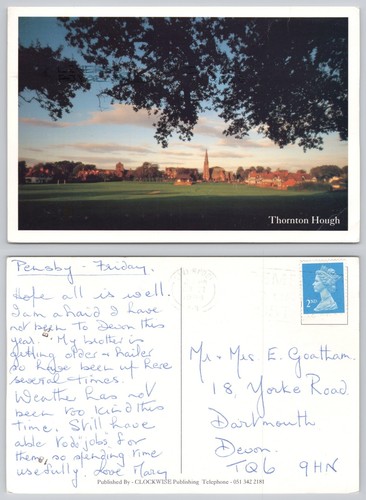 Thornton Hough
Pensby - Friday.
Hope all is well.
I am afraid I have
not been to Devon this
year. My brother is
getting older & frailer
so have been up here
several times.
Weather has not
been too kind this
time. Still have
able to do jobs for
them, so spending time
usefully. Love Mary
Mr & Mrs E. Goatham.
18, Yorke Road
Dartmouth
Devon.
TQ6 9HN
2ND
Published By - CLOCKWISE Publishing Telephone - 051 342 2181